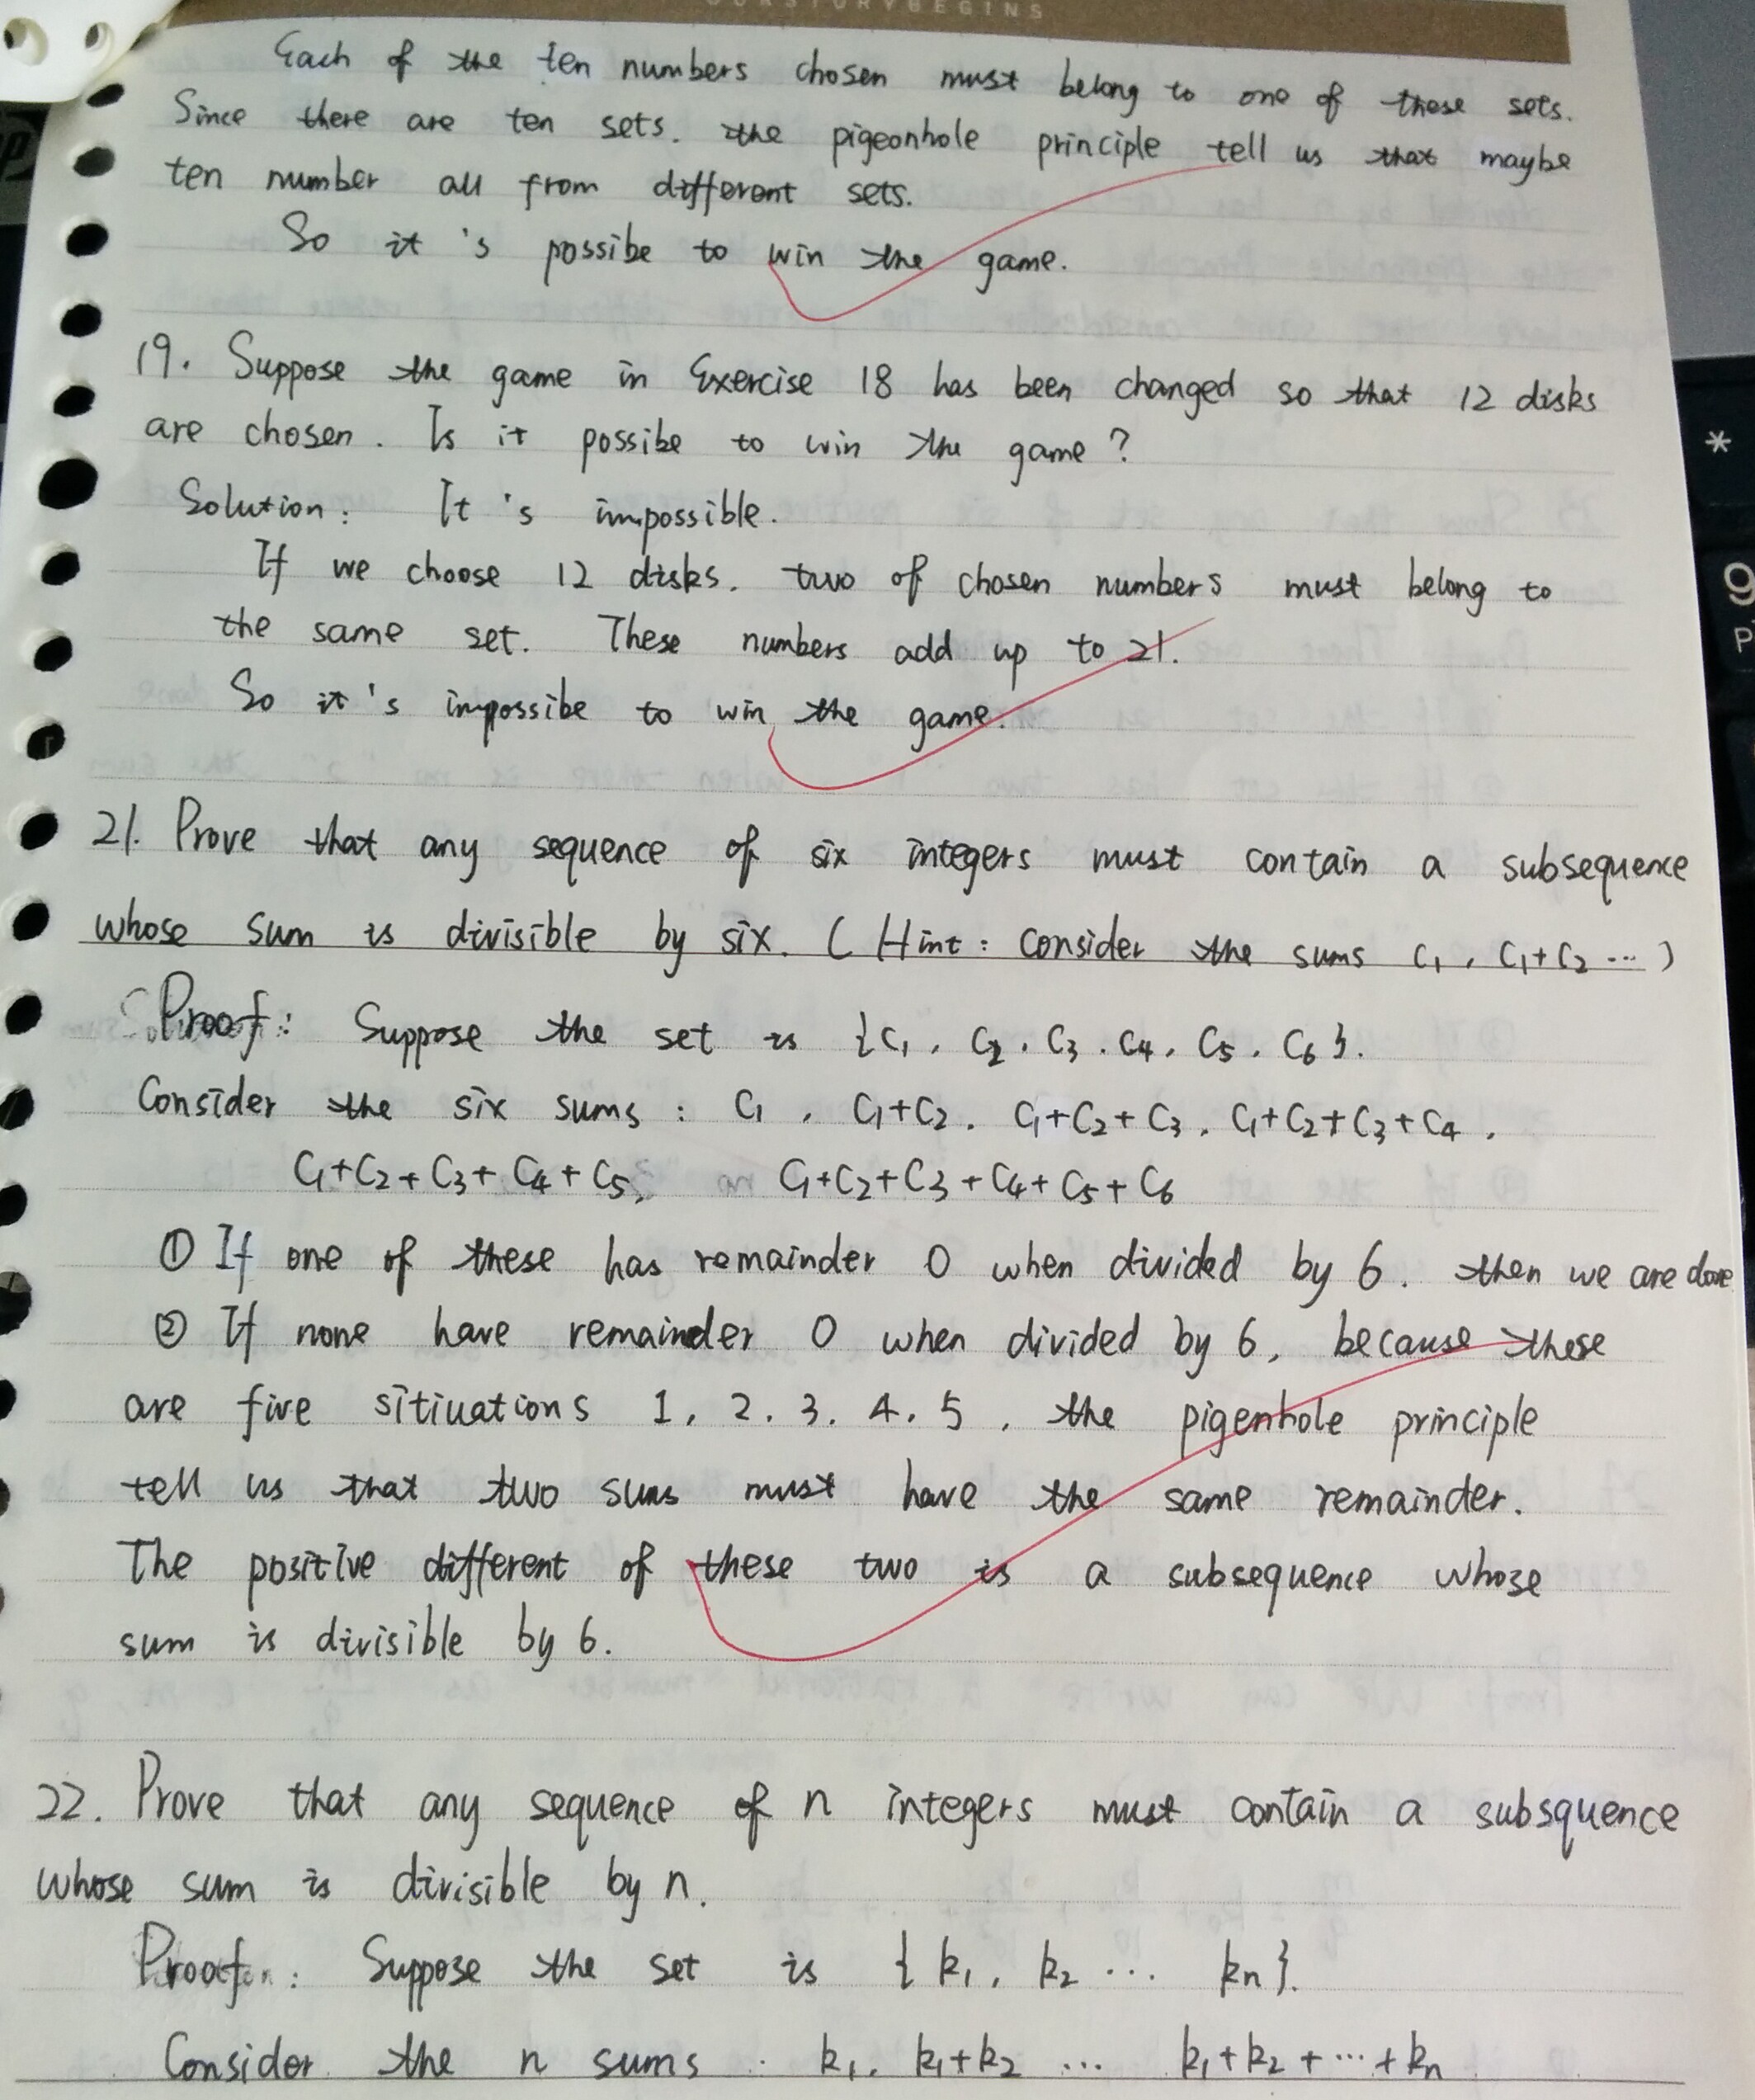 OURSTORYBEGINS
Each of the ten numbers chosen must belong to one of these sets.
Since there are ten sets. the pigeonhole principle tell us that maybe
ten number all from different sets.
So it's possibe to win the game.
19. Suppose the game in Exercise 18 has been changed so that 12 disks
are chosen. Is it possibe to win the game?
Solution: It's impossible.
If we choose 12 disks. two of chosen numbers must belong to
the same set. These numbers add up to 21.
So it's impossibe to win the game.
21. Prove that any sequence of six integers must contain a subsequence
whose sum is divisible by six. (Hint: consider the sums C1, C1+C2 ...)
Proof: Suppose the set is {C1, C2, C3, C4, C5, C6}.
Consider the six sums: C1, C1+C2, C1+C2+C3, C1+C2+C3+C4,
C1+C2+C3+C4+C5, C1+C2+C3+C4+C5+C6
① If one of these has remainder 0 when divided by 6. then we are done
② If none have remainder 0 when divided by 6, because these
are five sitiuations 1, 2, 3, 4, 5, the pigenhole principle
tell us that two sums must have the same remainder.
The positive different of these two is a subsequence whose
sum is divisible by 6.
22. Prove that any sequence of n integers must contain a subsquence
whose sum is divisible by n.
Proof: Suppose the set is {k1, k2 ... kn}.
Consider the n sums: k1, k1+k2 ... k1+k2+...+kn
*
9
P